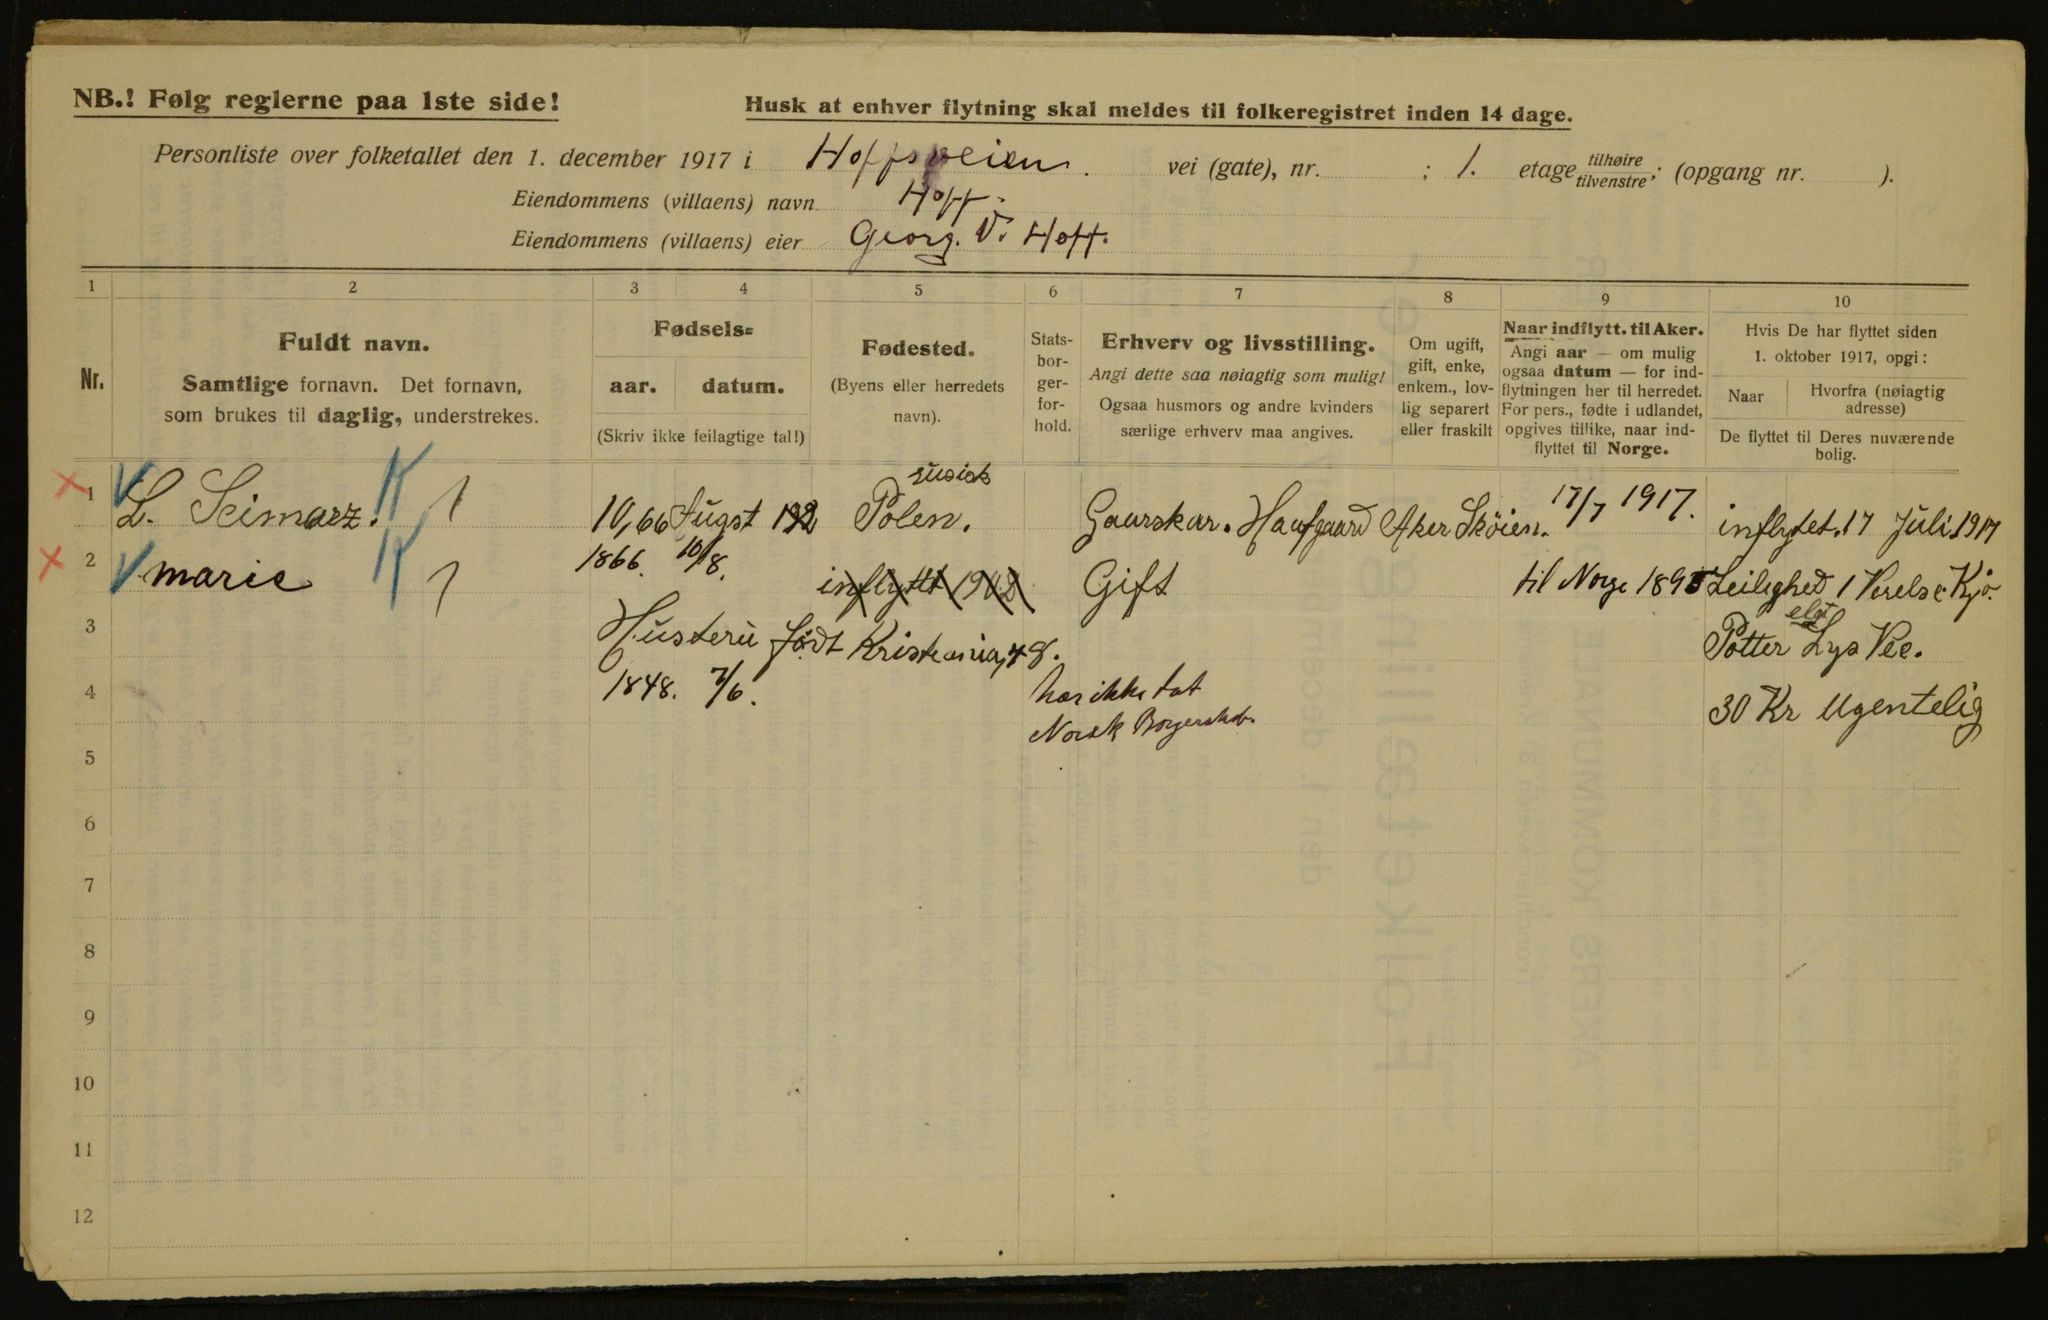 NB.! Følg reglerne paa 1ste side!
Husk at enhver flytning skal meldes til folkeregistret inden 14 dage.
Personliste over folketallet den 1. december 1917 i Hoffsveien. vei (gate), nr. ; 1. etage tilhøire tilvenstre; (opgang nr. ).
Eiendommens (villaens) navn Hoff.
Eiendommens (villaens) eier Georg. V. Hoff.
1 2 3 4 5 6 7 8 9 10
Nr.
Fuldt navn.
Samtlige fornavn. Det fornavn,
som brukes til daglig, understrekes.
Fødsels=
aar. datum.
(Skriv ikke feilagtige tal!)
Fødested.
(Byens eller herredets
navn).
Stats-
bor-
ger-
for-
hold.
Erhverv og livsstilling.
Angi dette saa nøiagtig som mulig!
Ogsaa husmors og andre kvinders
særlige erhverv maa angives.
Om ugift,
gift, enke,
enkem., lov-
lig separert
eller fraskilt
Naar indflytt. til Aker.
Angi aar — om mulig
ogsaa datum — for ind-
flytningen her til herredet.
For pers., fødte i udlandet,
opgives tillike, naar ind-
flyttet til Norge.
Hvis De har flyttet siden
1. oktober 1917, opgi:
Naar
Hvorfra (nøiagtig
adresse)
De flyttet til Deres nuværende
bolig.
rusisk
1 L. Scimarz. K 1 10,66 August Polen. Gaarskar. Aker Sköien. 17/7 1917. inflytet. 17 Juli 1917
2 marie K 1 1866. 10/8. inflyttet Gift til Norge 1895 Leilighed 1 Verelse Kjö.
3 Husteru født Kristeania, 48. Potter Lys Vee.
4 1848. 7/6. har ikke tat 30 Kr Ugentelig
Norsk Borgerskab.
5
6
7
8
9
10
11
12